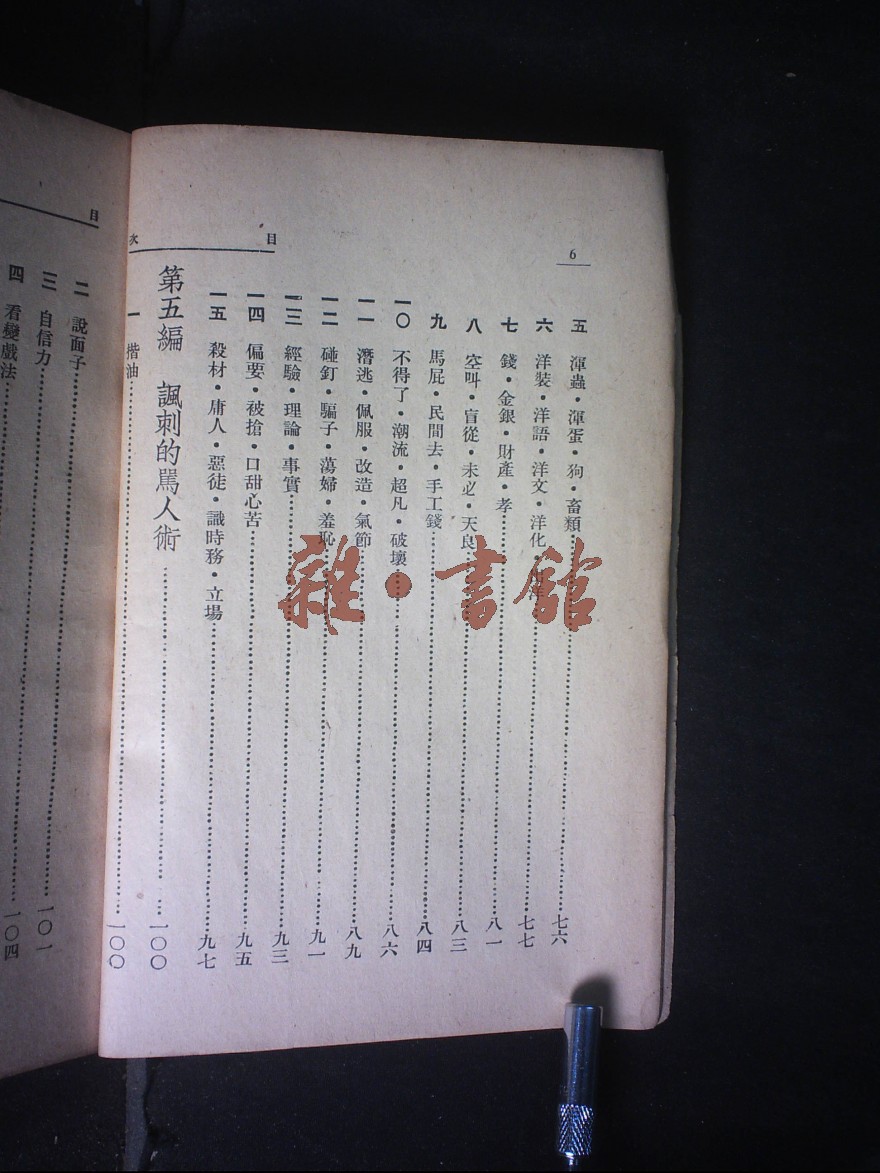 6
目次
五 渾蟲・渾蛋・狗・畜類 七六
六 洋裝・洋語・洋文・洋化・ 七七
七 錢・金銀・財產・孝 八一
八 空叫・盲從・未必・天良 八三
九 馬屁・民間去・手工錢 八四
一〇 不得了・潮流・超凡・破壞 八六
一一 潛逃・佩服・改造・氣節 八九
一二 碰釘・騙子・蕩婦・羞恥 九一
一三 經驗・理論・事實 九三
一四 偏要・被搶・口甜心苦 九五
一五 殺材・庸人・惡徒・識時務・立場 九七
第五編 諷刺的罵人術 一〇〇
一 揩油 一〇〇
目
二 說面子
三 自信力 一〇一
四 看變戲法 一〇四
雜・書館